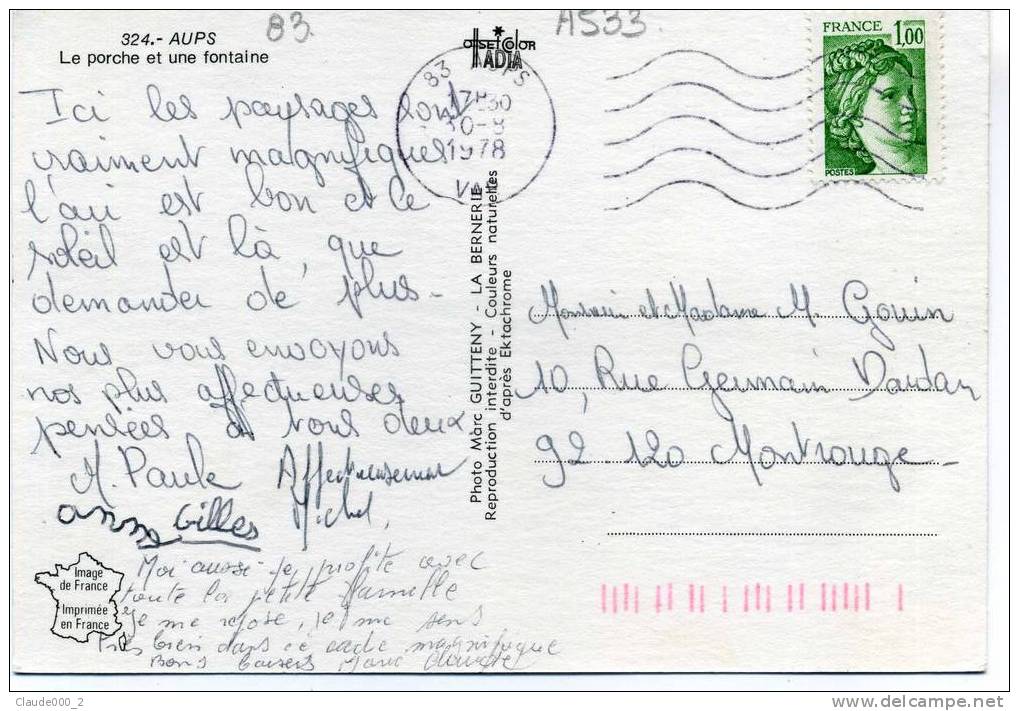 83
A533
324.- AUPS
Le porche et une fontaine
OFFSET COLOR
IADIA
FRANCE 1,00
POSTES
83 AUPS
17H30
30-8
1978
VAR
Ici les paysages sont
vraiment magnifiques
l'air est bon et le
soleil est là, que
demander de plus -
Nous vous envoyons
nos plus affectueuses
pensées à vous deux
M. Paule Affectueusement
anne Gilles Michel,
Moi aussi je profite avec
toute la petite famille
je me repose, je me sens
très bien dans ce cadre magnifique
Bons baisers Marie
Image
de France
Imprimée
en France
Photo Marc GUITTENY - LA BERNERIE
Reproduction interdite - Couleurs naturelles
d'après Ektachrome
Monsieur et Madame M. Gouin
10, Rue Germain Dardan
92 120 Montrouge -
Claude000_2
delcampe.net